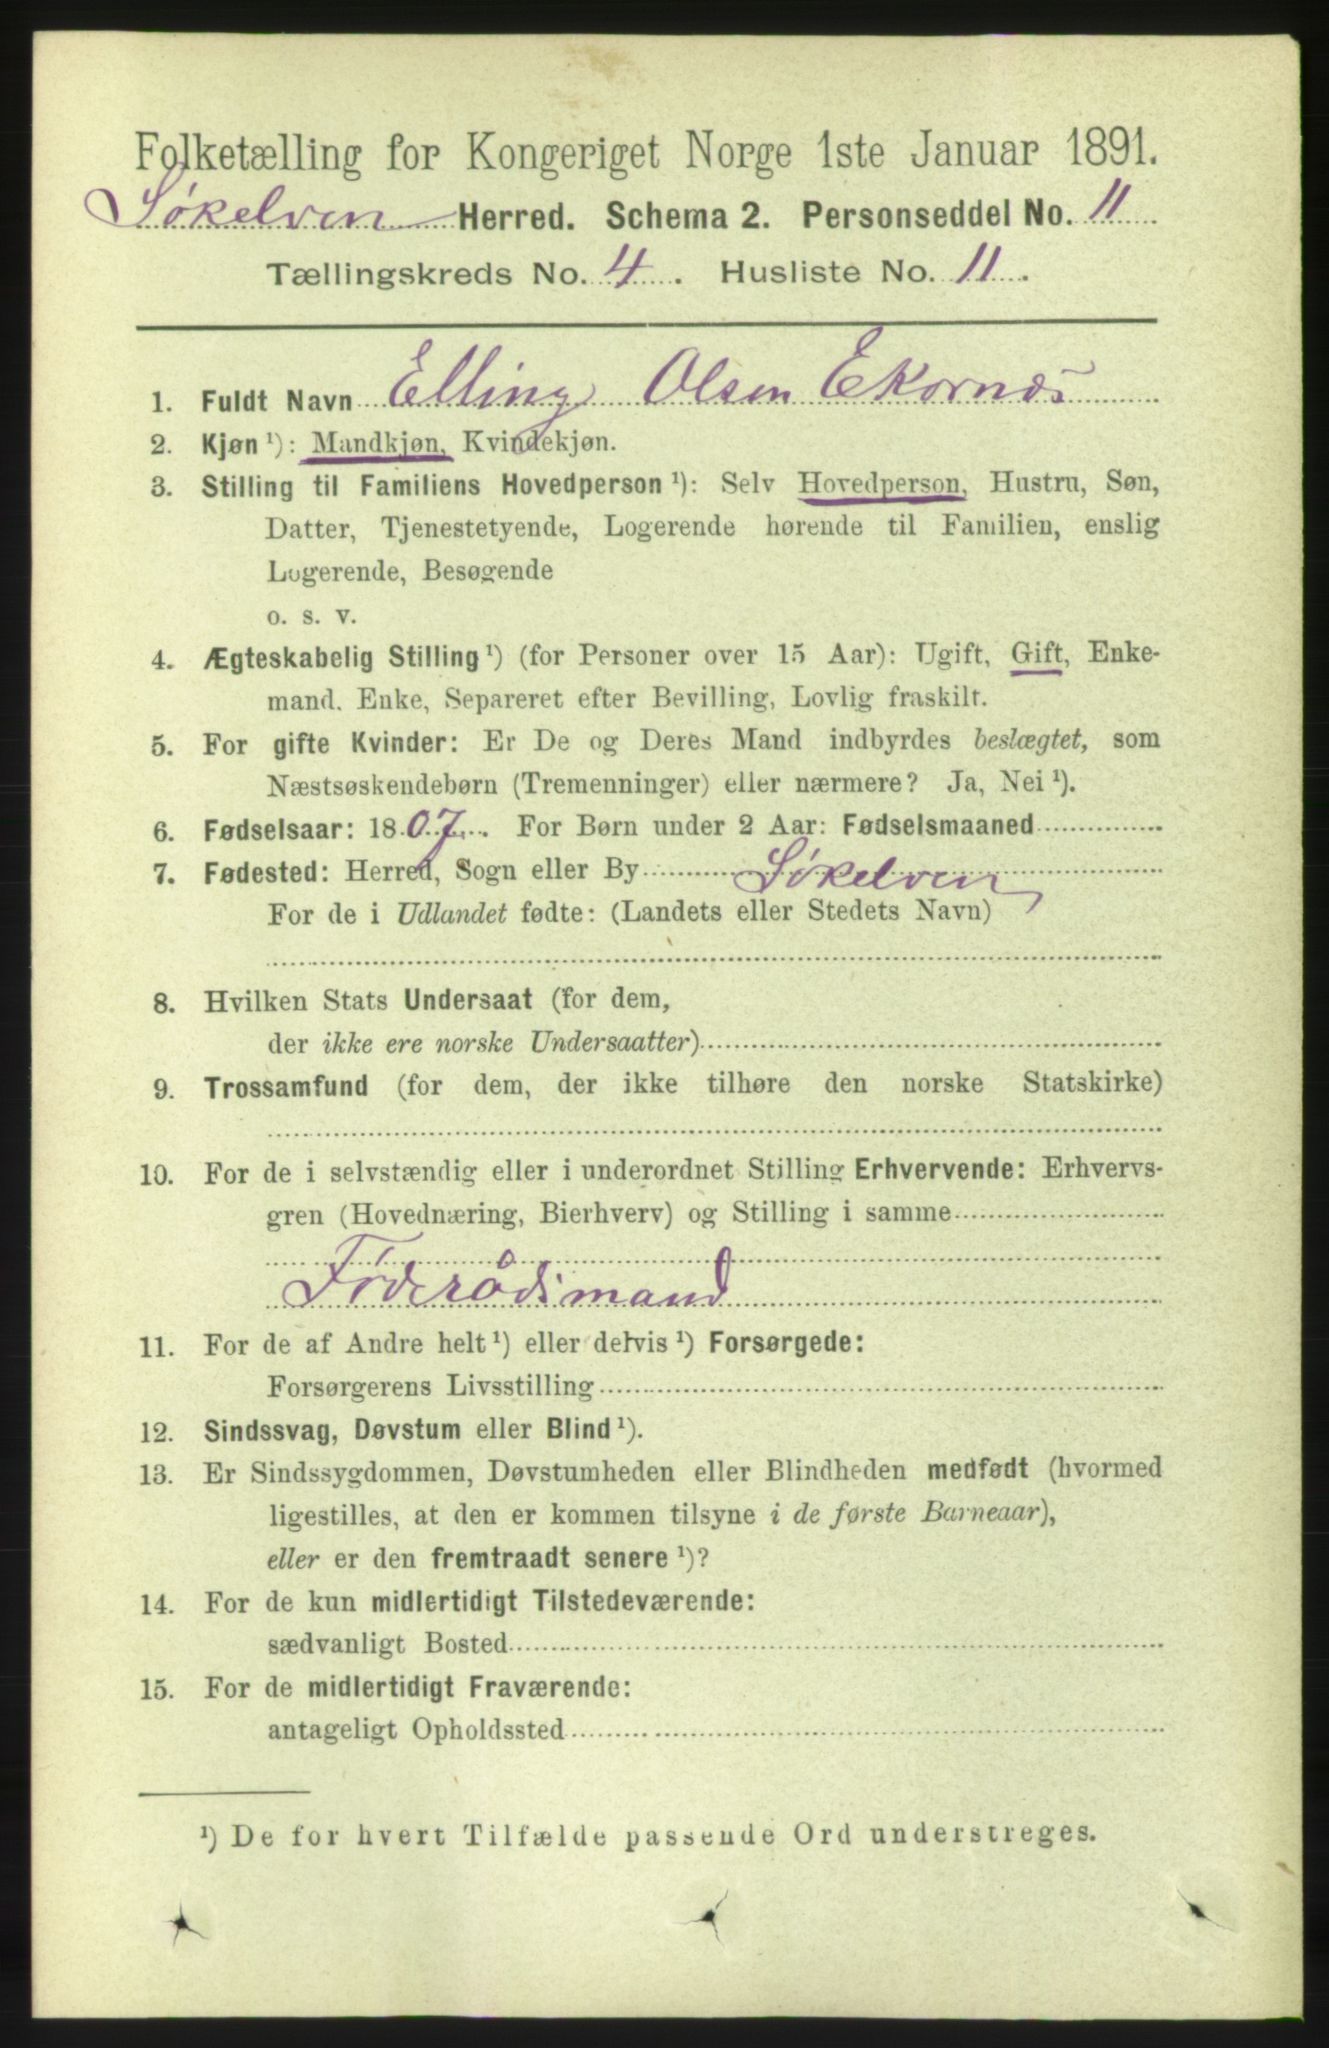 Folketælling for Kongeriget Norge 1ste Januar 1891.
Søkelven Herred. Schema 2. Personseddel No. 11
Tællingskreds No. 4. Husliste No. 11.
1. Fuldt Navn Elling Olsen Ekornæs
2. Kjøn ¹): Mandkjøn, Kvindekjøn.
3. Stilling til Familiens Hovedperson ¹): Selv Hovedperson, Hustru, Søn,
Datter, Tjenestetyende, Logerende hørende til Familien, enslig
Logerende, Besøgende
o. s. v.
4. Ægteskabelig Stilling ¹) (for Personer over 15 Aar): Ugift, Gift, Enke-
mand. Enke, Separeret efter Bevilling, Lovlig fraskilt.
5. For gifte Kvinder: Er De og Deres Mand indbyrdes beslægtet, som
Næstsøskendebørn (Tremenninger) eller nærmere? Ja, Nei ¹).
6. Fødselsaar: 1807. For Børn under 2 Aar: Fødselsmaaned
7. Fødested: Herred, Sogn eller By Søkelven
For de i Udlandet fødte: (Landets eller Stedets Navn)
8. Hvilken Stats Undersaat (for dem,
der ikke ere norske Undersaatter)
9. Trossamfund (for dem, der ikke tilhøre den norske Statskirke)
10. For de i selvstændig eller i underordnet Stilling Erhvervende: Erhvervs-
gren (Hovednæring, Bierhverv) og Stilling i samme
Føderådsmand
11. For de af Andre helt ¹) eller delvis ¹) Forsørgede:
Forsørgerens Livsstilling
12. Sindssvag, Døvstum eller Blind ¹).
13. Er Sindssygdommen, Døvstumheden eller Blindheden medfødt (hvormed
ligestilles, at den er kommen tilsyne i de første Barneaar),
eller er den fremtraadt senere ¹)?
14. For de kun midlertidigt Tilstedeværende:
sædvanligt Bosted
15. For de midlertidigt Fraværende:
antageligt Opholdssted
¹) De for hvert Tilfælde passende Ord understreges.